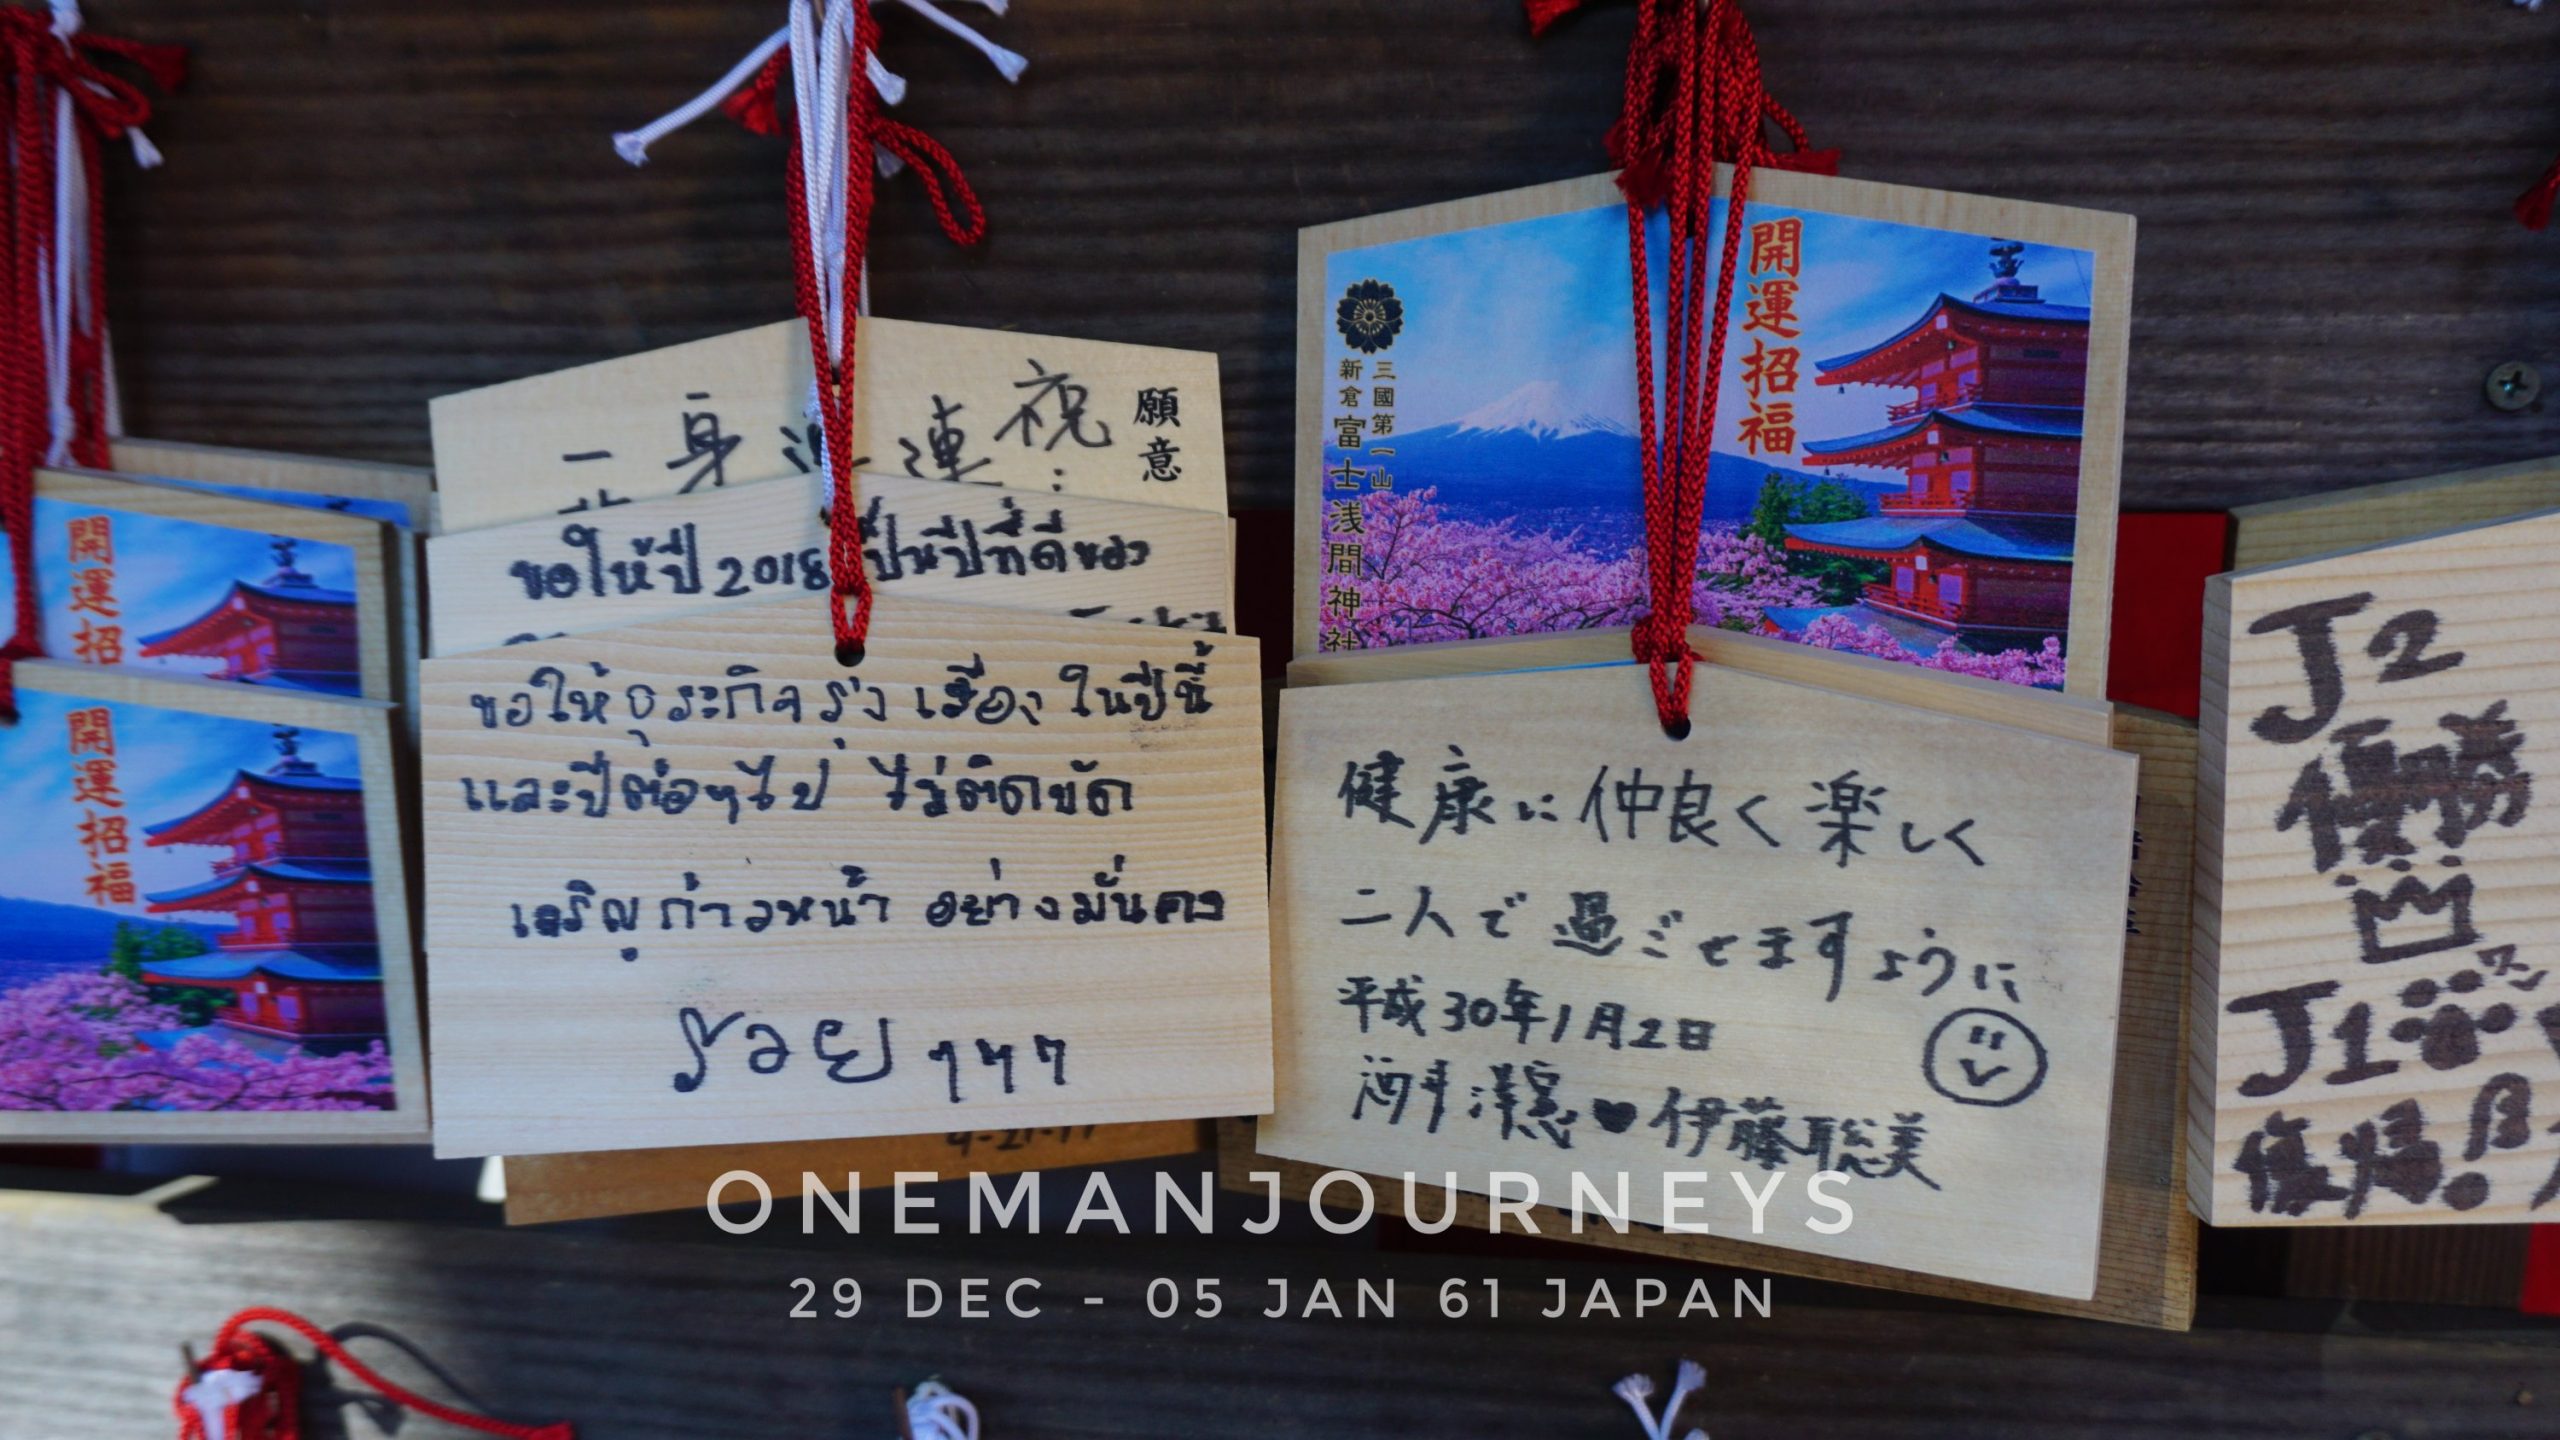 開運招福
開運招福
願意
祝
一身
連
ขอให้ปี 2018 เป็นปีที่ดีของ
ขอให้ธุระกิจรุ่งเรือง ในปีนี้
และปีต่อๆไป ไม่ติดขัด
เจริญก้าวหน้า อย่างมั่นคง
開運招福
三國第一山
新倉富士浅間神社
健康に仲良く楽しく
二人で過ごせますように
平成30年1月2日
伊藤聡美
J2
優勝
J1
復帰!
ONEMANJOURNEYS
29 DEC - 05 JAN 61 JAPAN